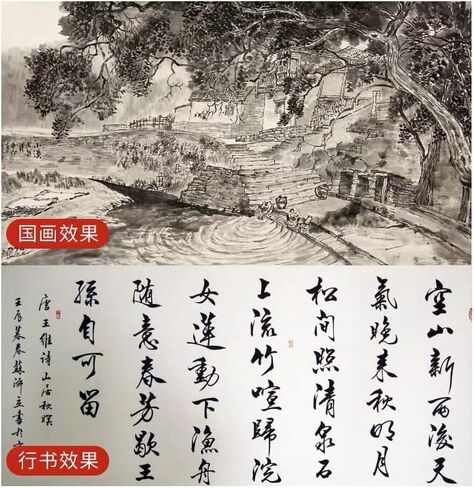 国画效果
空山新雨後天
氣晚来秋明月
松间照清泉石
上流竹喧歸浣
女蓮動下渔舟
随意春芳歇王
孫自可留
唐王维诗山居秋暝
壬辰暮春蘇立書於
行书效果